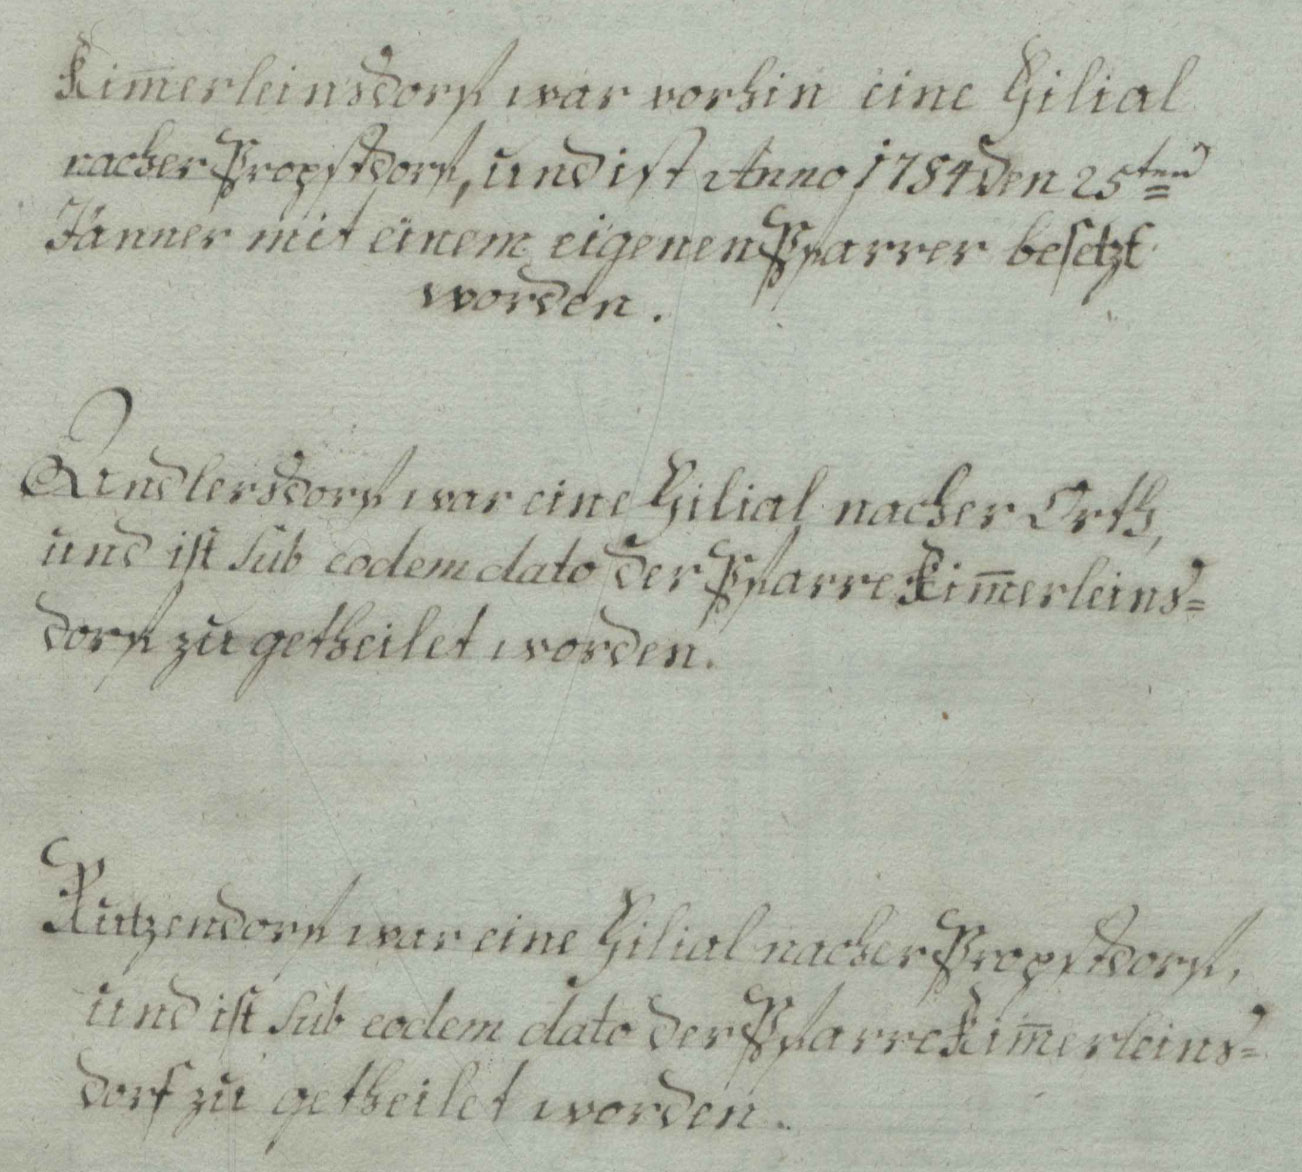 Kim̅erleinsdorf war vorhin eine Filial
nacher Propstdorf, und ist Anno 1784 den 25ten
Jänner mit einem eigenen Pfarrer besetzt
worden.
Andlersdorf war eine Filial nacher Orth,
und ist sub eodem dato der Pfarre Kim̅erleins=
dorf zu getheilet worden.
Rutzendorf war eine Filial nacher Propstdorf,
und ist sub eodem dato der Pfarre Kim̅erleins=
dorf zu getheilet worden.